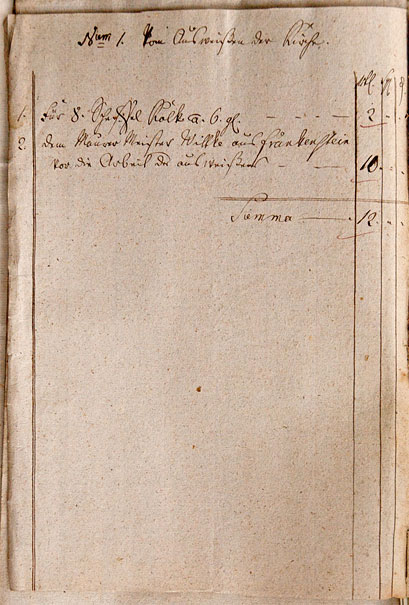 Num 1. Vom Ausweißen der Kirche.
1. Für 8. Scheffel Kalk a. 6. gl. 2
2. dem Maurer Meister Wilke aus Frankenstein
vor die Arbeit des ausweißens 10
Summa 12